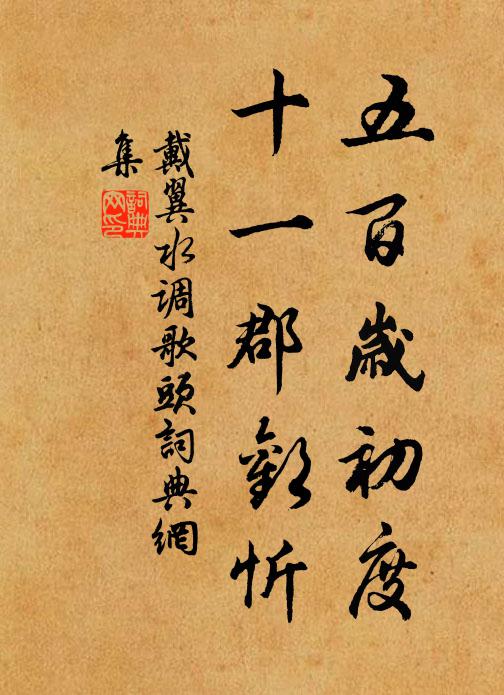 五百歲初度
十一郡歡忻
戴翼水调歌頭詞典網
集
詞典
网印